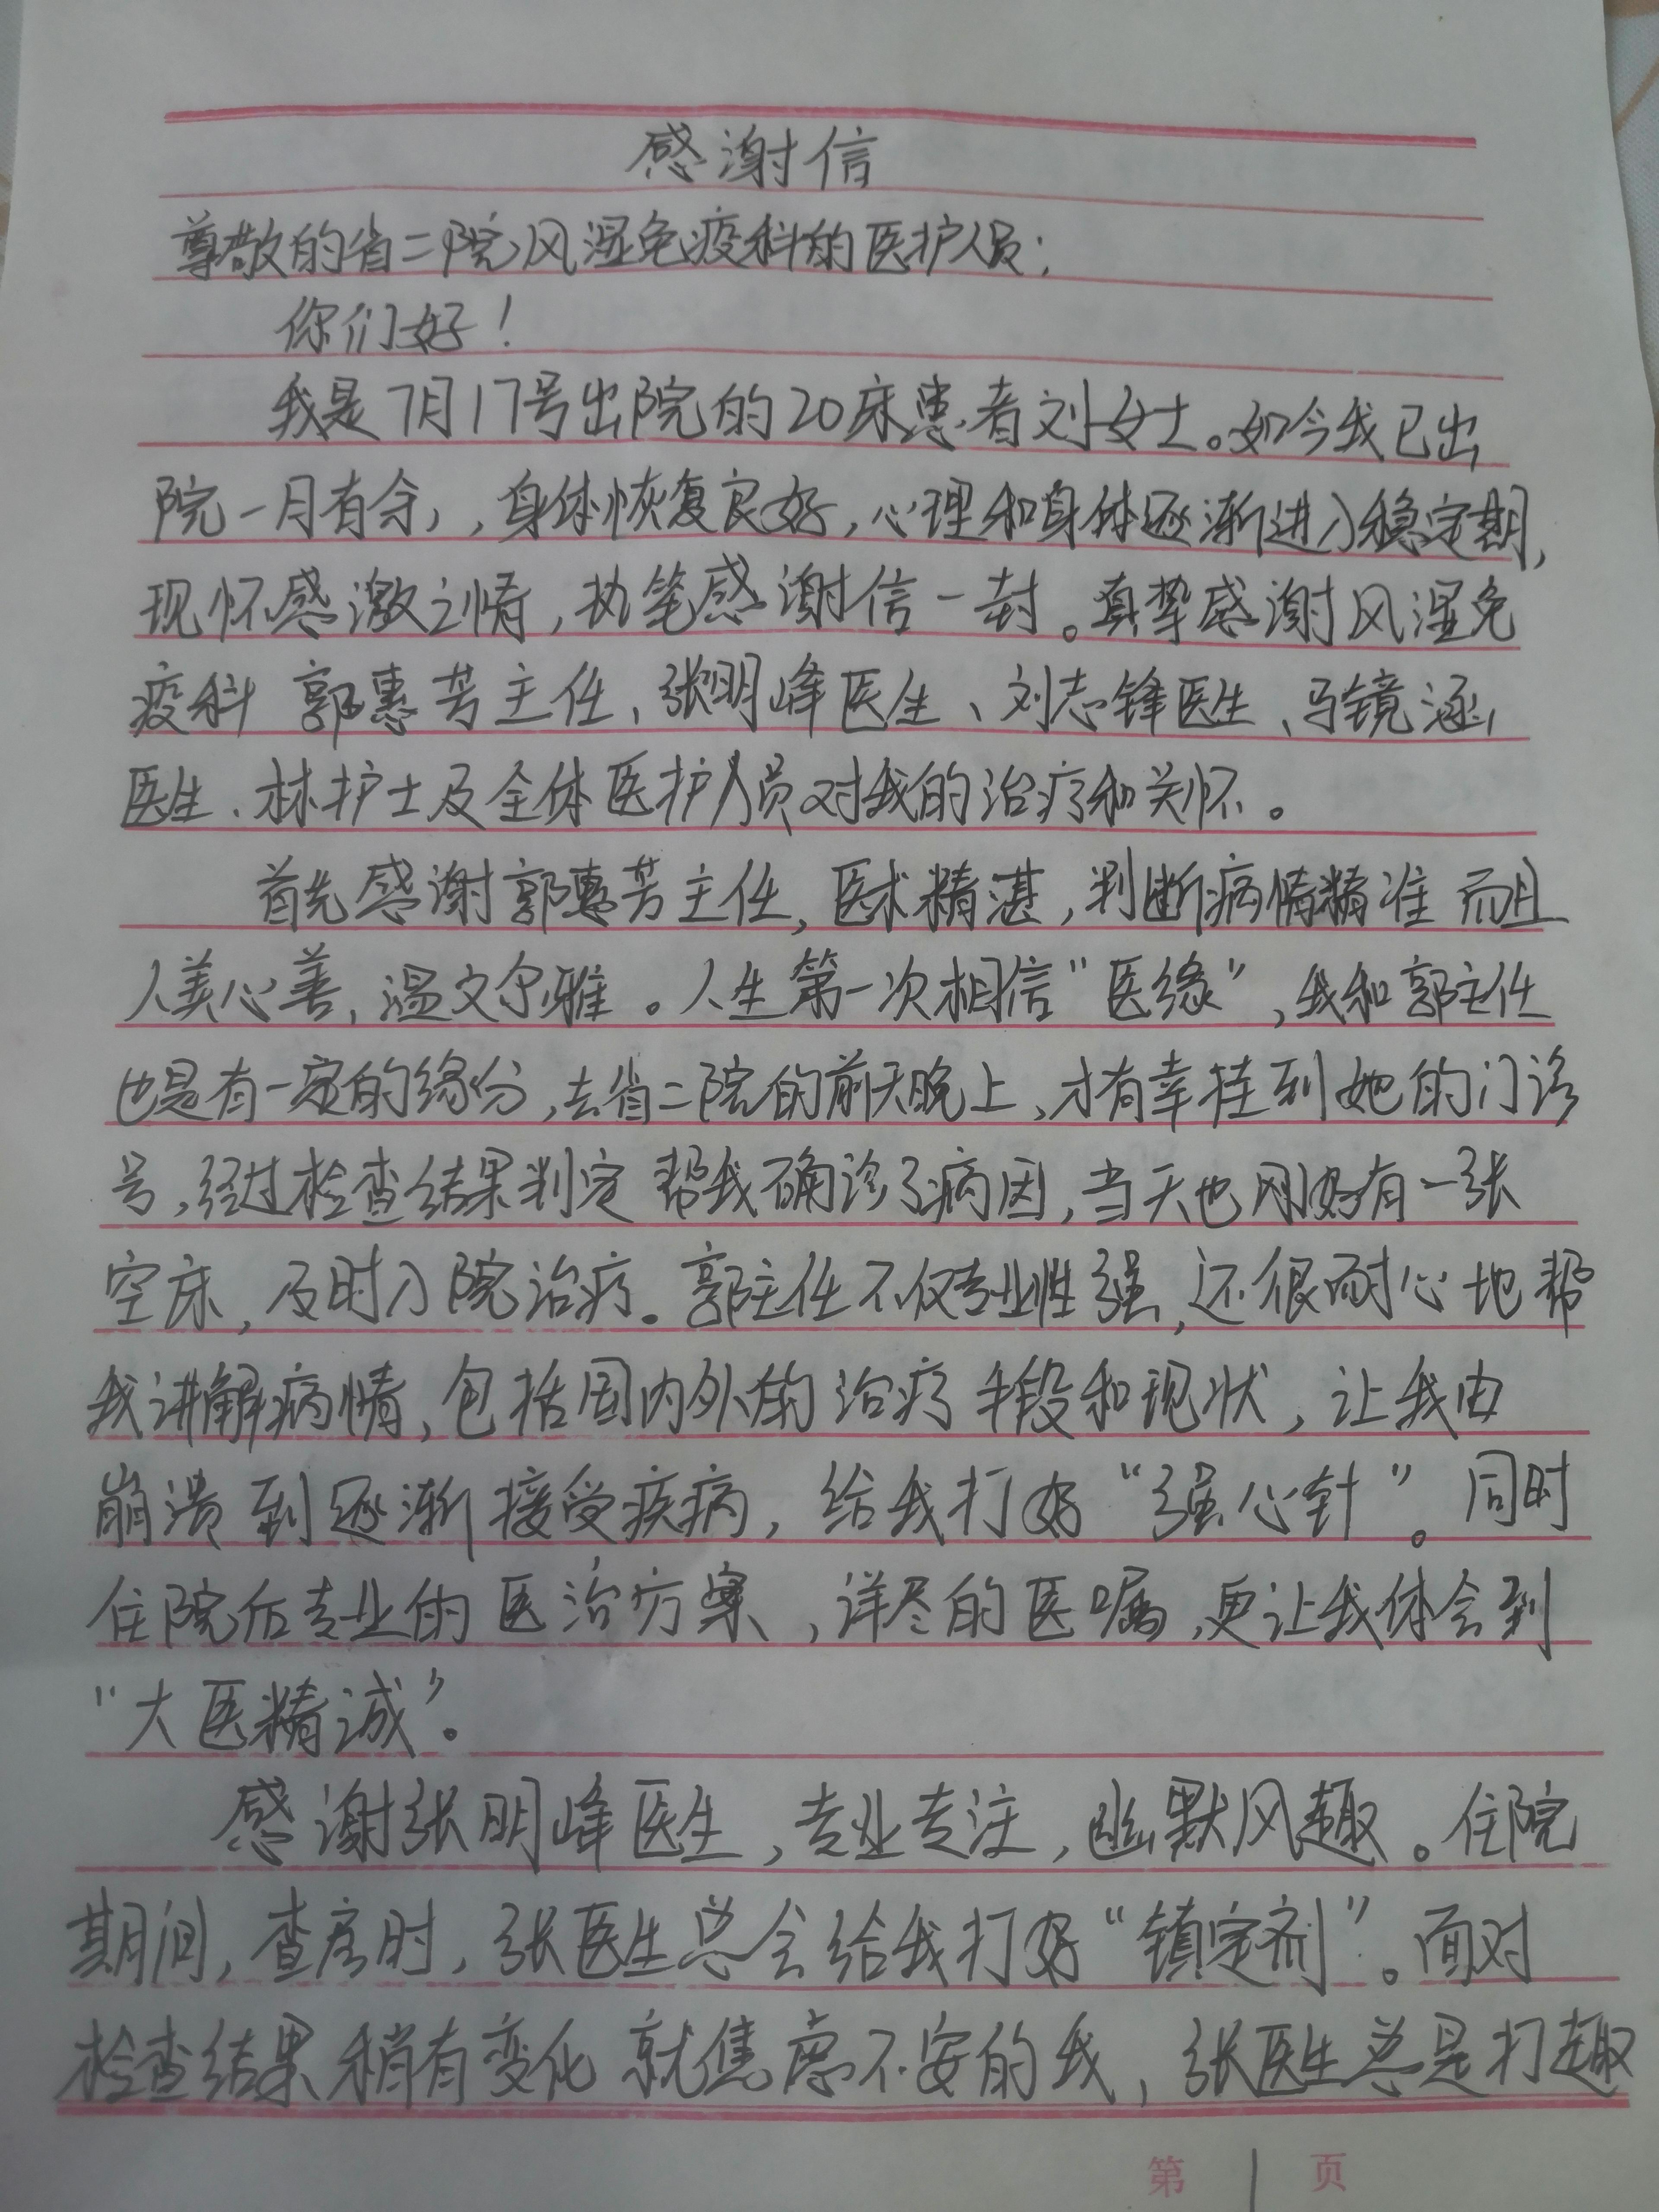 感谢信
尊敬的省二院风湿免疫科的医护人员：
你们好！
我是7月17号出院的20床患者刘女士。如今我已出
院一月有余，，身体恢复良好，心理和身体逐渐进入稳定期，
现怀感激之情，执笔感谢信一封。真挚感谢风湿免
疫科 郭惠芳主任、张明峰医生、刘志锋医生、马镜涵
医生、林护士及全体医护人员对我的治疗和关怀。
首先感谢郭惠芳主任，医术精湛，判断病情精准 而且
人美心善，温文尔雅。人生第一次相信“医缘”，我和郭主任
也是有一定的缘份，去省二院的前天晚上，才有幸挂到她的门诊
号，经过检查结果判定 帮我确诊了病因，当天也刚好有一张
空床，及时入院治疗。郭主任不仅专业性强，还很耐心地帮
我讲解病情，包括国内外的治疗手段和现状，让我由
崩溃到逐渐接受疾病，给我打好“强心针”。同时
住院后专业的医治方案，详尽的医嘱，更让我体会到
“大医精诚”。
感谢张明峰医生，专业专注，幽默风趣。住院
期间，查房时，张医生总会给我打好“镇定剂”。面对
检查结果稍有变化 就焦虑不安的我，张医生总是打趣
第 1 页